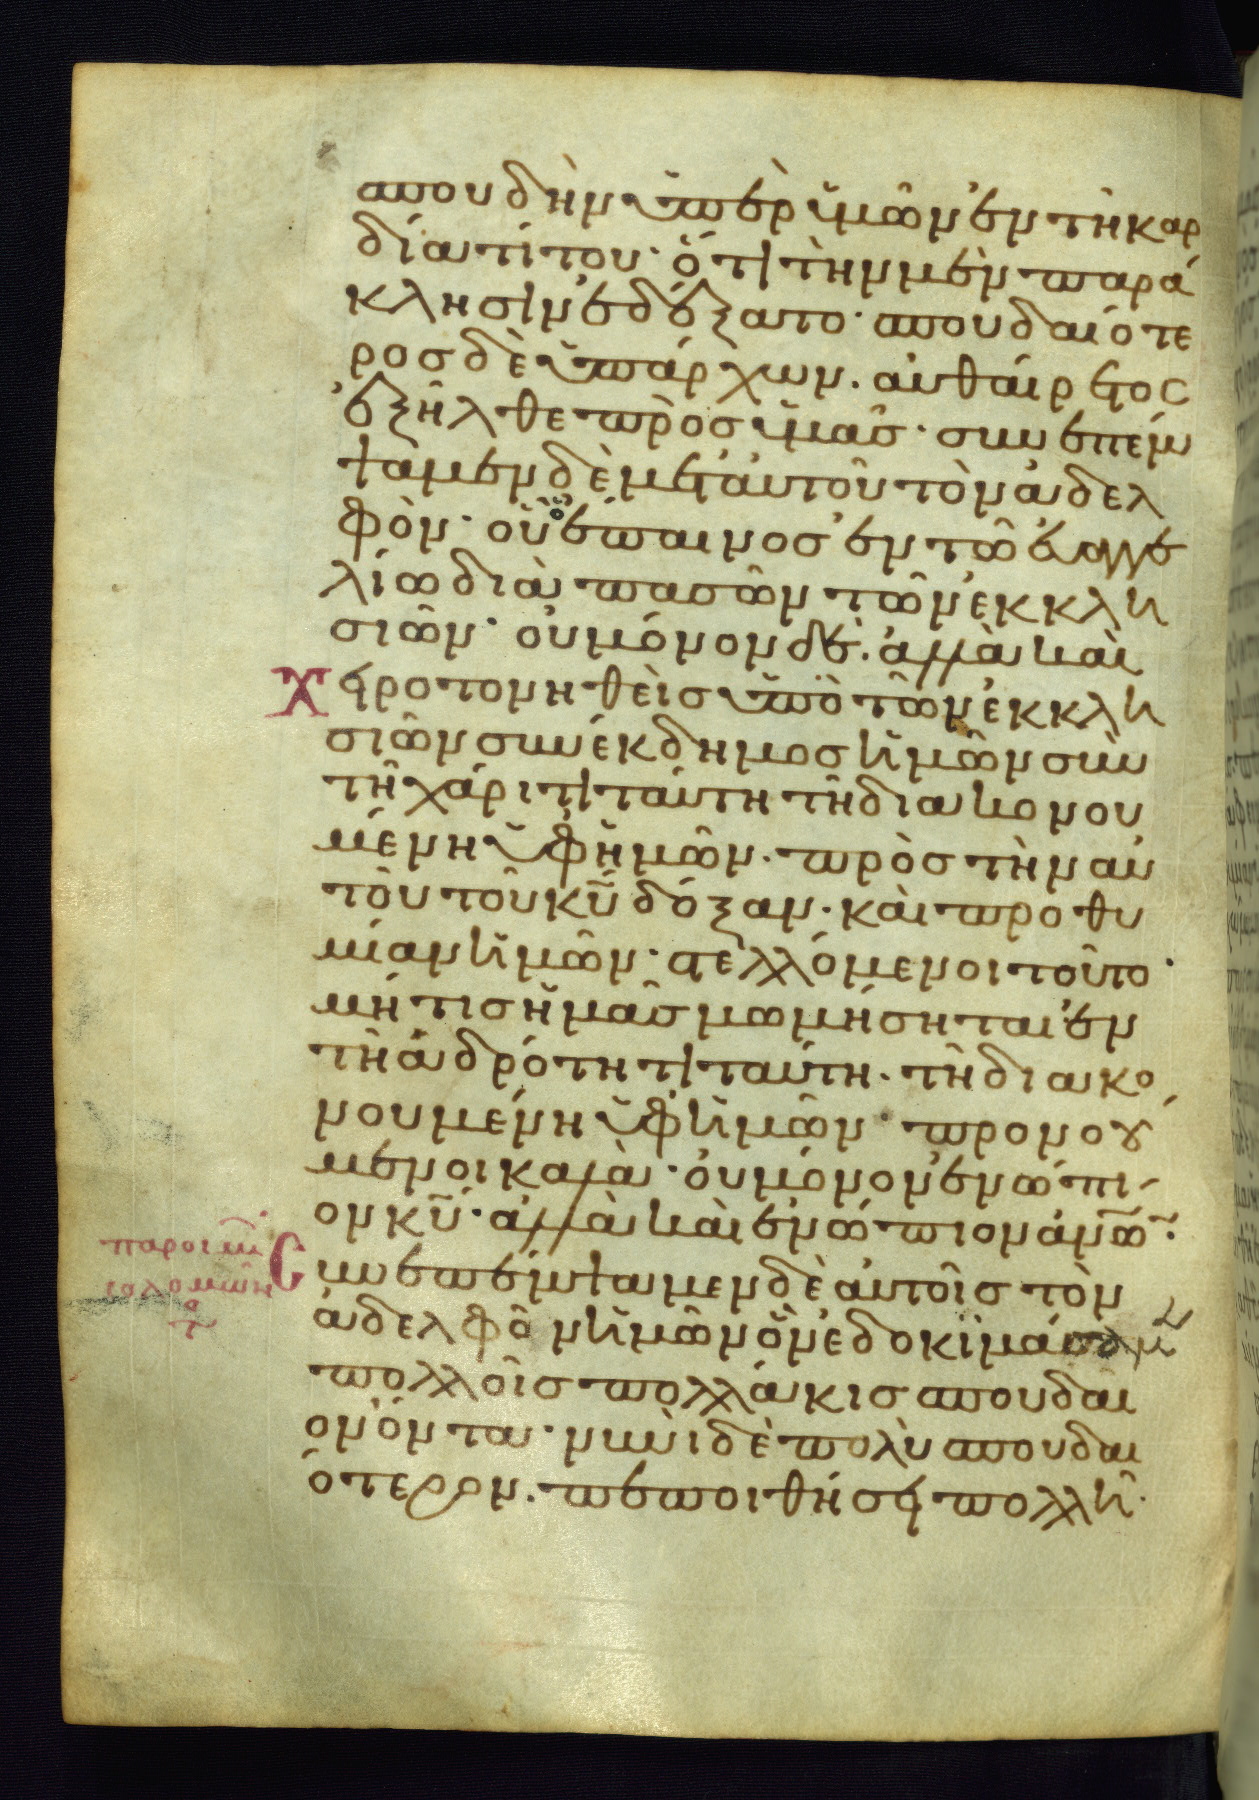 σπουδὴν ὑπὲρ ὑμῶν ἐν τῆ καρ
δία τίτου· ὅτι τὴν μὲν παρά
κλησιν ἐδέξατο· σπουδαιότε
ρος δὲ ὑπάρχων. αυθαίρετος
ἐξῆλθε πρὸς ὑμᾶς· συνεπέμ
ψαμεν δὲ μετ' αὐτοῦ τὸν ἀδελ
φὸν· οὗ ὁ ἔπαινος ἐν τῶ ευαγγε
λίω διὰ πασῶν τῶν ἐκκλη
σιῶν· οὐ μόνον δὲ. ἀλλὰ καὶ
χειροτονηθεὶς ὑπὸ τῶν ἐκκλη
σιῶν συνέκδημος ἡμῶν σὺν
τῆ χάριτι ταύτη τῆ διακονου
μένη ὑφ ἡμῶν· πρὸς τὴν αὐ
τοῦ τοῦ κῦ δόξαν· καὶ προθυ
μίαν ἡμῶν· στελλόμενοι τοῦτο·
μή τις ἡμᾶς μωμήσηται ἐν
τῆ ἁδρότητι ταύτη· τῆ διακο
νουμένη ὑφ ἡμῶν· προνοού
μενοι καλὰ· οὐ μόνον ἐνώπι
ον κῦ· ἀλλὰ καὶ ἐνώπιον ἀνῶν·
παροιμι
σολομῶν
Συνεπέμψαμεν δὲ αὐτοῖς τὸν
ἀδελφὸν ἡμῶν ὃν ἐδοκιμάσαμεν
πολλοῖς πολλάκις σπουδαῖ
ον ὄντα· νυνὶ δὲ πολὺ σπουδαι
ότερον. πεποιθήσει πολλῆ·